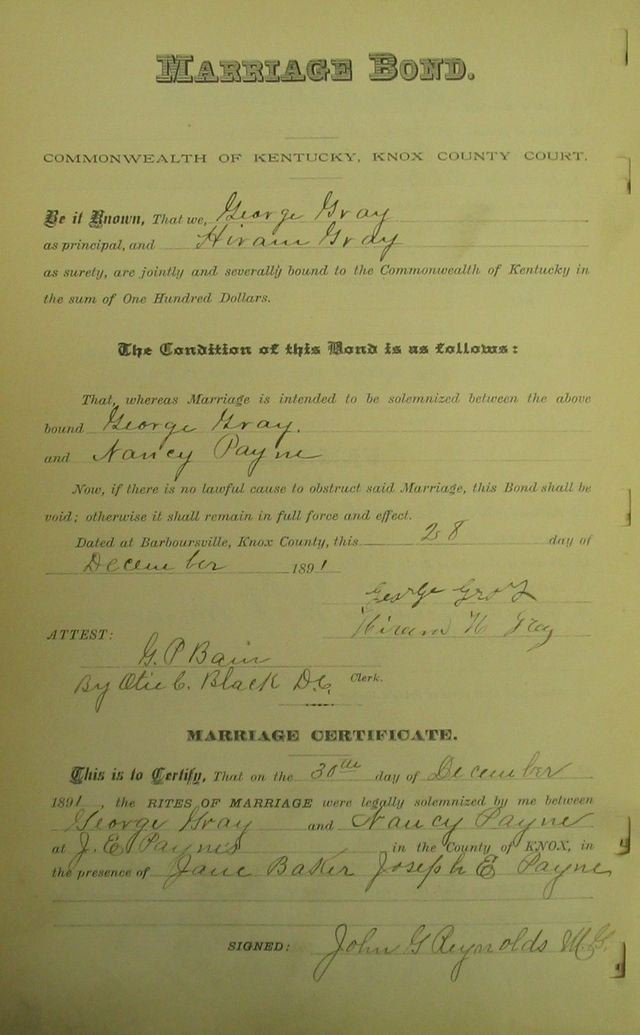 MARRIAGE BOND.
COMMONWEALTH OF KENTUCKY, KNOX COUNTY COURT.
Be it Known, That we, George Gray
as principal, and Hiram Gray
as surety, are jointly and severally bound to the Commonwealth of Kentucky in
the sum of One Hundred Dollars.
The Condition of this Bond is as follows:
That, whereas Marriage is intended to be solemnized between the above
bound George Gray.
and Nancy Payne
Now, if there is no lawful cause to obstruct said Marriage, this Bond shall be
void; otherwise it shall remain in full force and effect.
Dated at Barboursville, Knox County, this 28 day of
December 1891
George Gray
Hiram H Gray
ATTEST:
G. P Bain
By Otie C. Black D.C. Clerk.
MARRIAGE CERTIFICATE.
This is to Certify, That on the 30th day of December
1891, the RITES OF MARRIAGE were legally solemnized by me between
George Gray and Nancy Payne
at J. E Paynes in the County of KNOX, in
the presence of Jane Baker Joseph E Payne
SIGNED: John G Reynolds M.G.